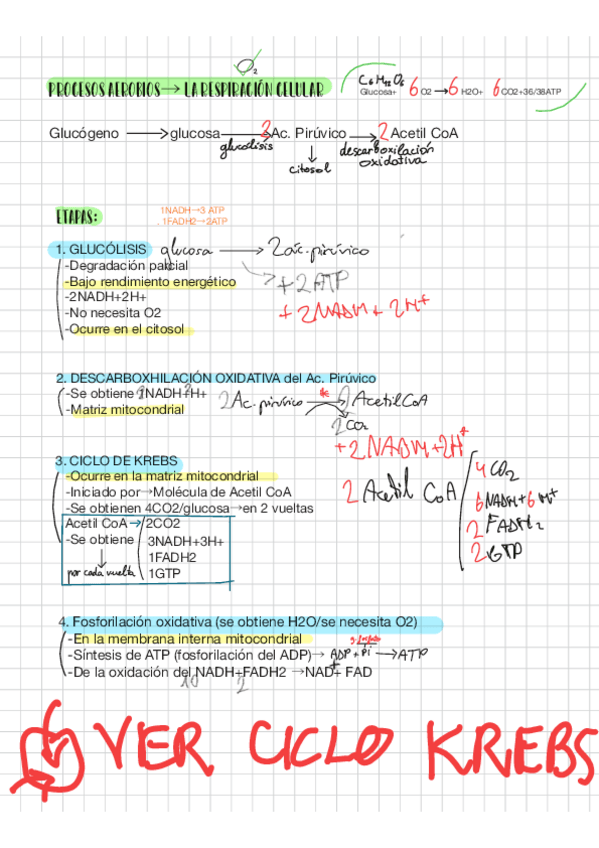 O2
PROCESOS AEROBIOS→ LA RESPIRACIÓN CELULAR
C6H12O6
Glucosa+ 6 O2 → 6 H2O+ 6 CO2+36/38ATP
Glucógeno → glucosa → 2 Ac. Pirúvico → 2 Acetil CoA
glucólisis
citosol
descarboxilación oxidativa
ETAPAS:
1NADH→3 ATP
1FADH2→2ATP
1. GLUCÓLISIS glucosa → 2 ác. pirúvico
-Degradación parcial
-Bajo rendimiento energético + 2 ATP
-2NADH+2H+ + 2 NADH + 2H+
-No necesita O2
-Ocurre en el citosol
2. DESCARBOXHILACIÓN OXIDATIVA del Ac. Pirúvico
-Se obtiene 2NADH+2H+ 2 Ac. pirúvico → 2 Acetil CoA
-Matriz mitocondrial
2 CO2
+ 2 NADH + 2H+
3. CICLO DE KREBS
-Ocurre en la matriz mitocondrial
-Iniciado por→Molécula de Acetil CoA
-Se obtienen 4CO2/glucosa→en 2 vueltas
2 Acetil CoA
4 CO2
6 NADH + 6 H+
2 FADH2
2 GTP
Acetil CoA→ 2CO2
-Se obtiene 3NADH+3H+
1FADH2
por cada vuelta 1GTP
4. Fosforilación oxidativa (se obtiene H2O/se necesita O2)
-En la membrana interna mitocondrial
-Síntesis de ATP (fosforilación del ADP)→ ADP + Pi → ATP
-De la oxidación del NADH+FADH2 →NAD+ FAD
10 2
VER CICLO KREBS